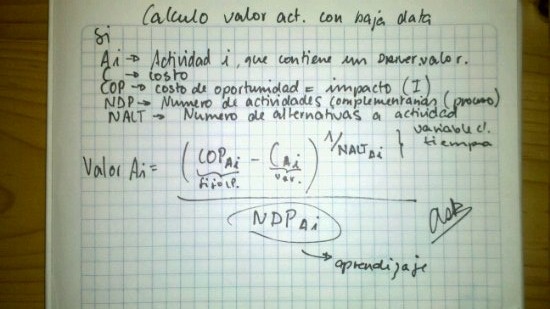 Calculo valor act. con baja data
Si
Ai → Actividad i, que contiene un Driver valor.
C → costo
COP → costo de oportunidad = impacto (I)
NDP → Numero de actividades complementarias (proceso)
NALT → Numero de alternativas a actividad
variable c/.
tiempo
Valor Ai = (COP Ai - C Ai) 1/NALT Ai
fijo LP. var.
NDP Ai
aprendizaje